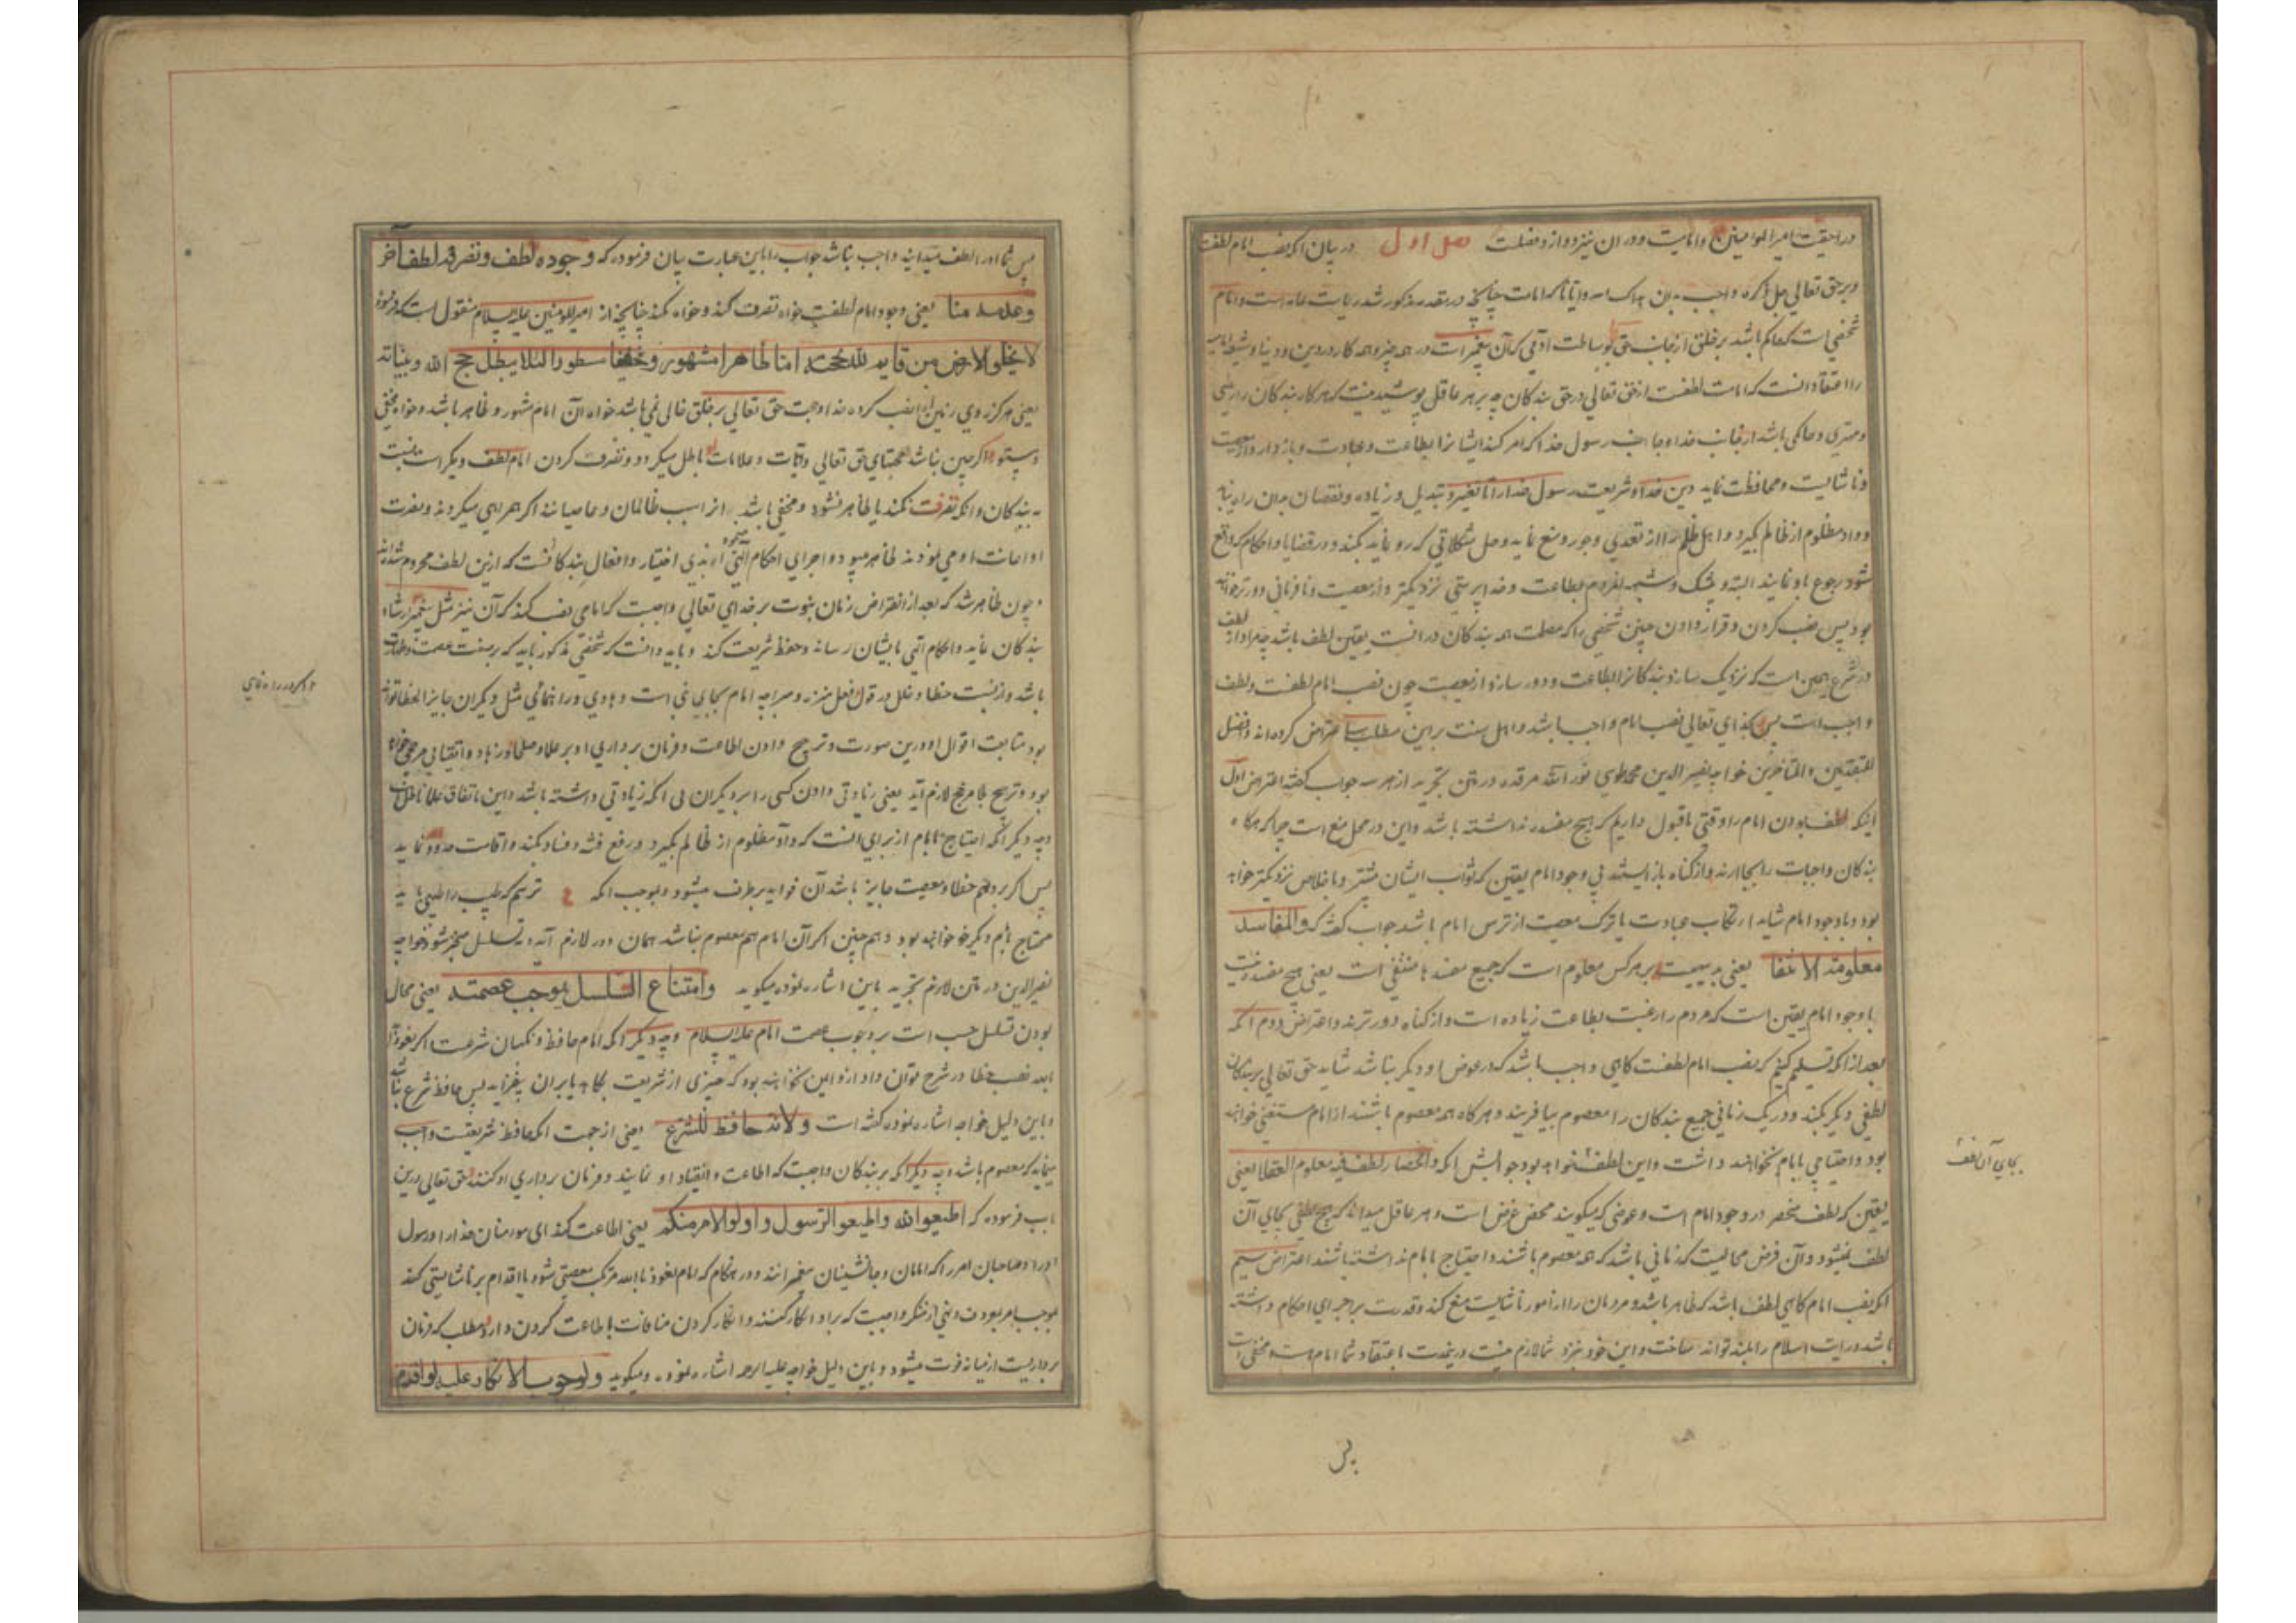 در احقیت امیرالمؤمنین و امامت و در ان نیز دوازده فصلست فصل اول در بیان آنکه نصب امام لطفست
و بر حق تعالی واجب بدان که امامت چنانچه در مقدمه مذکور شد ریاست عامه است و امام
شخصی است که حاکم باشد بر خلق از جانب حق بوساطت آدمی که آن پیغمبر است در همه چیز و همه کار در دین و دنیا و شیعه امامیه
را اعتقاد انست که امامت لطفست از حق تعالی در حق بندگان چه بر هر عاقل پوشیده نیست که هرگاه بندگان را رئیسی
و مهتری و حاکمی باشد از جانب خدا و جانب رسول خدا که امر کند ایشانرا بطاعت و عبادت و باز دارد از معصیت
و ناشایست و محافظت نماید دین خدا و شریعت رسول خدا را تا تغییر و تبدیل و زیاده و نقصان بدان راه نیابد
و داد مظلوم از ظالم بگیرد و اهل ظلم را از تعدی و جور منع نماید و حل مشکلاتی که رو نماید بکند و در قضایا و احکام که واقع
شود رجوع باو نمایند البته و بیشک و شبهه مردم بطاعت و خدا پرستی نزدیکتر و از معصیت و نافرمانی دورتر خواهند
بود پس نصب کردن و قرار دادن چنین شخصی را که مصلحت همه بندگان در انست یقین لطف باشد چه مراد از لطف
در شرع همین است که نزدیک سازد بندگانرا بطاعت و دور سازد از معصیت چون نصب امام لطفست و لطف
واجب است پس بر خدای تعالی نصب امام واجب باشد و اهل سنت بر این مطلب سه اعتراض کرده‌اند و افضل
المتقدمین والمتاخرین خواجه نصیر الدین محمد طوسی نور الله مرقده در متن تجرید از هر سه جواب گفته اعتراض اول
اینکه لطف بودن امام را وقتی ما قبول داریم که هیچ مفسده نداشته باشد و این در محل منع است چرا که هرگاه
بندگان واجبات را بجا ارند و از گناه باز ایستند بی وجود امام یقین که ثواب ایشان بیشتر و باخلاص نزدیکتر خواهد
بود و با وجود امام شاید ارتکاب عبادت یا ترک معصیت از ترس امام باشد جواب گفته که والمفاسد
معلومة الانتفا یعنی بر هر کس معلوم است که جمیع مفسدها منتفی است یعنی هیچ مفسده نیست
با وجود امام یقین است که مردم را رغبت بطاعت زیاده است و از گناه دورترند و اعتراض دوم آنکه
بعد از آنکه تسلیم کنیم که نصب امام لطفست گاهی واجب باشد که در عوض او دیگر نباشد شاید حق تعالی بر بندگان
لطفی دیگر بکند و در یک زمانی جمیع بندگان را معصوم بیافریند و هرگاه همه معصوم باشند از امام مستغنی خواهند
بود و احتیاجی بامام نخواهند داشت و این لطف خواهد بود جوابش آنکه وانحصار لطف فیه معلوم للعقلا یعنی
یقین که لطف منحصر در وجود امام است و عوضی که میگویند محض غرض است و هر عاقل میداند که هیچ لطفی بجای آن
لطف نمیشود و آن فرض محالیست که زمانی باشد که همه معصوم باشند و احتیاج بامام نداشته باشند اعتراض سیم
آنکه نصب امام گاهی لطف باشد که ظاهر باشد و مردمان را از امور ناشایست منع کند و قدرت بر اجرای احکام داشته
باشد و رایت اسلام را بلند تواند ساخت و این خود نزد شما لازم نیست در غیبت باعتقاد شما امام هست و مخفی است
بجای آن لطف
پس
پس شما او را لطف میدانید واجب نباشد جواب را باین عبارت بیان فرموده که وجوده لطف و تصرفه لطف آخر
وعدمه منا یعنی وجود امام لطفست خواه تصرف کند و خواه نکند چنانچه از امیرالمؤمنین علیه السلام منقول است که فرموده
لا یخلو الارض من قایم لله بحجته اما ظاهرا مشهورا و خفیا مستورا لئلا یبطل حجج الله وبیناته
یعنی هرگز روی زمین از نصب کرده خدا و حجت حق تعالی بر خلق خالی نمی باشد خواه آن امام مشهور و ظاهر باشد و خواه مخفی
و مستور و اگر چنین نباشد حجتهای حق تعالی و آیات و علامات او باطل میگردد و تصرف کردن امام لطف دیگر است نسبت
به بندگان و آنکه تصرف نکند یا ظاهر نشود و مخفی باشد از سبب ظالمان و عاصیانند اگر همراهی میکردند و نصرت
او و اعانت او می نمودند ظاهر میبود و اجرای احکام الهی مینمود
چون ظاهر شد که بعد از انقراض زمان نبوت بر خدای تعالی واجبست که امامی نصب کند که آن نیز مثل پیغمبر ارشاد
بندگان نماید و احکام الهی بایشان رساند و حفظ شریعت کند و باید دانست که شخصی مذکور باید که بصفت عصمت و طهارت
باشد و از نسبت خطا و خلل در قول و فعل منزه و مبرا چه امام بجای نبی است و هادی و راهنمائی مثل دیگران جایز الخطا تواند
بود متابعت اقوال او درین صورت و ترجیح دادن اطاعت و فرمان برداری او بر علما و صلحا و زهاد و اتقیا بی مرجح خواهد
بود و ترجیح بلا مرجح لازم آید یعنی زیادتی دادن کسی را بر دیگران بی آنکه زیادتی داشته باشد و این باتفاق عقلا باطلست
وجه دیگر آنکه احتیاج بامام از برای انست که داد مظلوم از ظالم بگیرد و رفع فتنه و فساد بکند و اقامت حدود نماید
پس اگر بر وهم خطا و معصیت جایز باشد آن فواید برطرف میشود و بموجب آنکه ع ترسم که طبیب را طبیبی باید
محتاج بامام دیگر خواهند بود و همچنین اگر آن امام هم معصوم نباشد همان دور لازم آید و بتسلسل منجر شود و خواجه
نصیرالدین در متن تجرید باین اشاره نموده میگوید وامتناع التسلسل یوجب عصمته یعنی محال
بودن تسلسل سبب است بر وجوب عصمت امام علیه السلام وجه دیگر آنکه امام حافظ و نگهبان شریعت است اگر نعوذ
بالله نصب خطا در شرح توان داد ازو ایمن نخواهند بود که چیزی از شریعت بکاهد یا بران بیفزاید پس حافظ شرع نباشد
و باین دلیل خواجه اشاره نموده گفته است ولانه حافظ للشرع یعنی از جهت آنکه حافظ شریعتست واجب
مینماید که معصوم باشد وجه دیگر آنکه بر بندگان واجبست که اطاعت و انقیاد او نمایند و فرمان برداری او کنند حق تعالی درین
باب فرموده که اطیعوا الله واطیعو الرسول واولو الامر منکم یعنی اطاعت کنید ای مومنان خدا را و رسول
او را و صاحبان امر را که امامان و جانشینان پیغمبرانند و در هنگام که امام نعوذ بالله مرتکب معصیتی شود یا اقدام بر ناشایستی کند
بموجب امر بمعروف و نهی از منکر واجبست که بر او انکار کنند و انکار کردن منافات باطاعت کردن دارد و مطلب که فرمان
برداریست از میانه فوت میشود و باین دلیل خواجه علیه الرحمه اشاره نموده و میگوید ولوجوب الانکار علیه لو اقدم